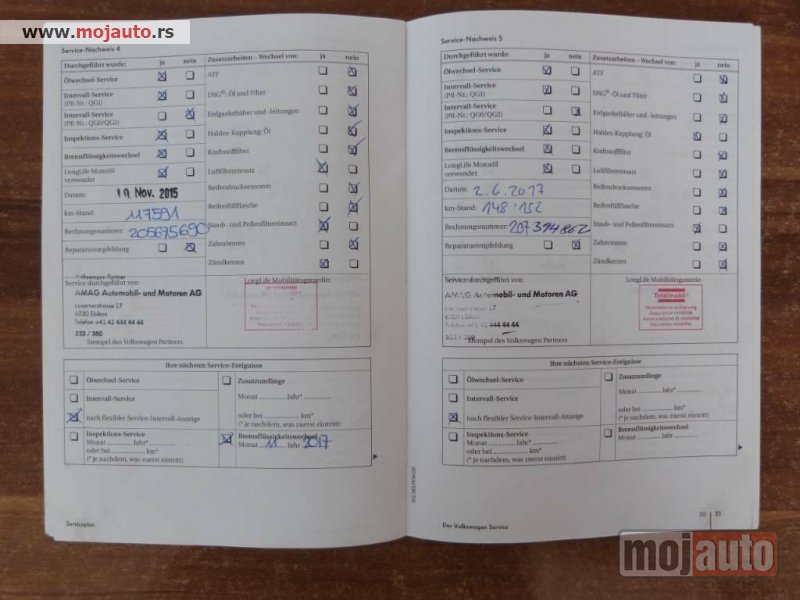 www.mojauto.rs
Service-Nachweis 4
Durchgeführt wurde: ja nein
Ölwechsel-Service
Intervall-Service
(PR-Nr.: QG1)
Intervall-Service
(PR-Nr.: QG0/QG2)
Inspektions-Service
Bremsflüssigkeitswechsel
LongLife Motoröl
verwendet
Datum: Nov. 2015
km-Stand: 117591
Rechnungsnummer: 205675690
Reparaturempfehlung
Zusatzarbeiten - Wechsel von: ja nein
ATF
DSG®: Öl und Filter
Erdgasbehälter und -leitungen
Haldex-Kupplung: Öl
Kraftstofffilter
Luftfiltereinsatz
Reifendrucksensoren
Reifenfüllflasche
Staub- und Pollenfiltereinsatz
Zahnriemen
Zündkerzen
Service durchgeführt von:
Volkswagen Partner
AMAG Automobil- und Motoren AG
Luzernerstrasse 17
6030 Ebikon
Telefon +41 41 444 44 44
333 / 360
Stempel des Volkswagen Partners
LongLife Mobilitätsgarantie:
Ihre nächsten Service-Ereignisse
Ölwechsel-Service
Intervall-Service
nach flexibler Service-Intervall-Anzeige
Inspektions-Service
Monat Jahr*
oder bei km*
(* je nachdem, was zuerst eintritt)
Zusatzumfänge
Monat Jahr*
oder bei km*
(* je nachdem, was zuerst eintritt)
Bremsflüssigkeitswechsel
Monat 11 Jahr 2017
Serviceplan
Service-Nachweis 5
Durchgeführt wurde: ja nein
Ölwechsel-Service
Intervall-Service
(PR-Nr.: QG1)
Intervall-Service
(PR-Nr.: QG0/QG2)
Inspektions-Service
Bremsflüssigkeitswechsel
LongLife Motoröl
verwendet
Datum: 2.6.2017
km-Stand: 148'152
Rechnungsnummer: 207394862
Reparaturempfehlung
Zusatzarbeiten - Wechsel von: ja nein
ATF
DSG®: Öl und Filter
Erdgasbehälter und -leitungen
Haldex-Kupplung: Öl
Kraftstofffilter
Luftfiltereinsatz
Reifendrucksensoren
Reifenfüllflasche
Staub- und Pollenfiltereinsatz
Zahnriemen
Zündkerzen
Service durchgeführt von:
AMAG Automobil- und Motoren AG
Telefon +41 41 444 44 44
Stempel des Volkswagen Partners
LongLife Mobilitätsgarantie:
Totalmobil!
Ihre nächsten Service-Ereignisse
Ölwechsel-Service
Intervall-Service
nach flexibler Service-Intervall-Anzeige
Inspektions-Service
Monat Jahr*
oder bei km*
(* je nachdem, was zuerst eintritt)
Zusatzumfänge
Monat Jahr*
oder bei km*
(* je nachdem, was zuerst eintritt)
Bremsflüssigkeitswechsel
Monat Jahr
Der Volkswagen Service
20 21
mojauto